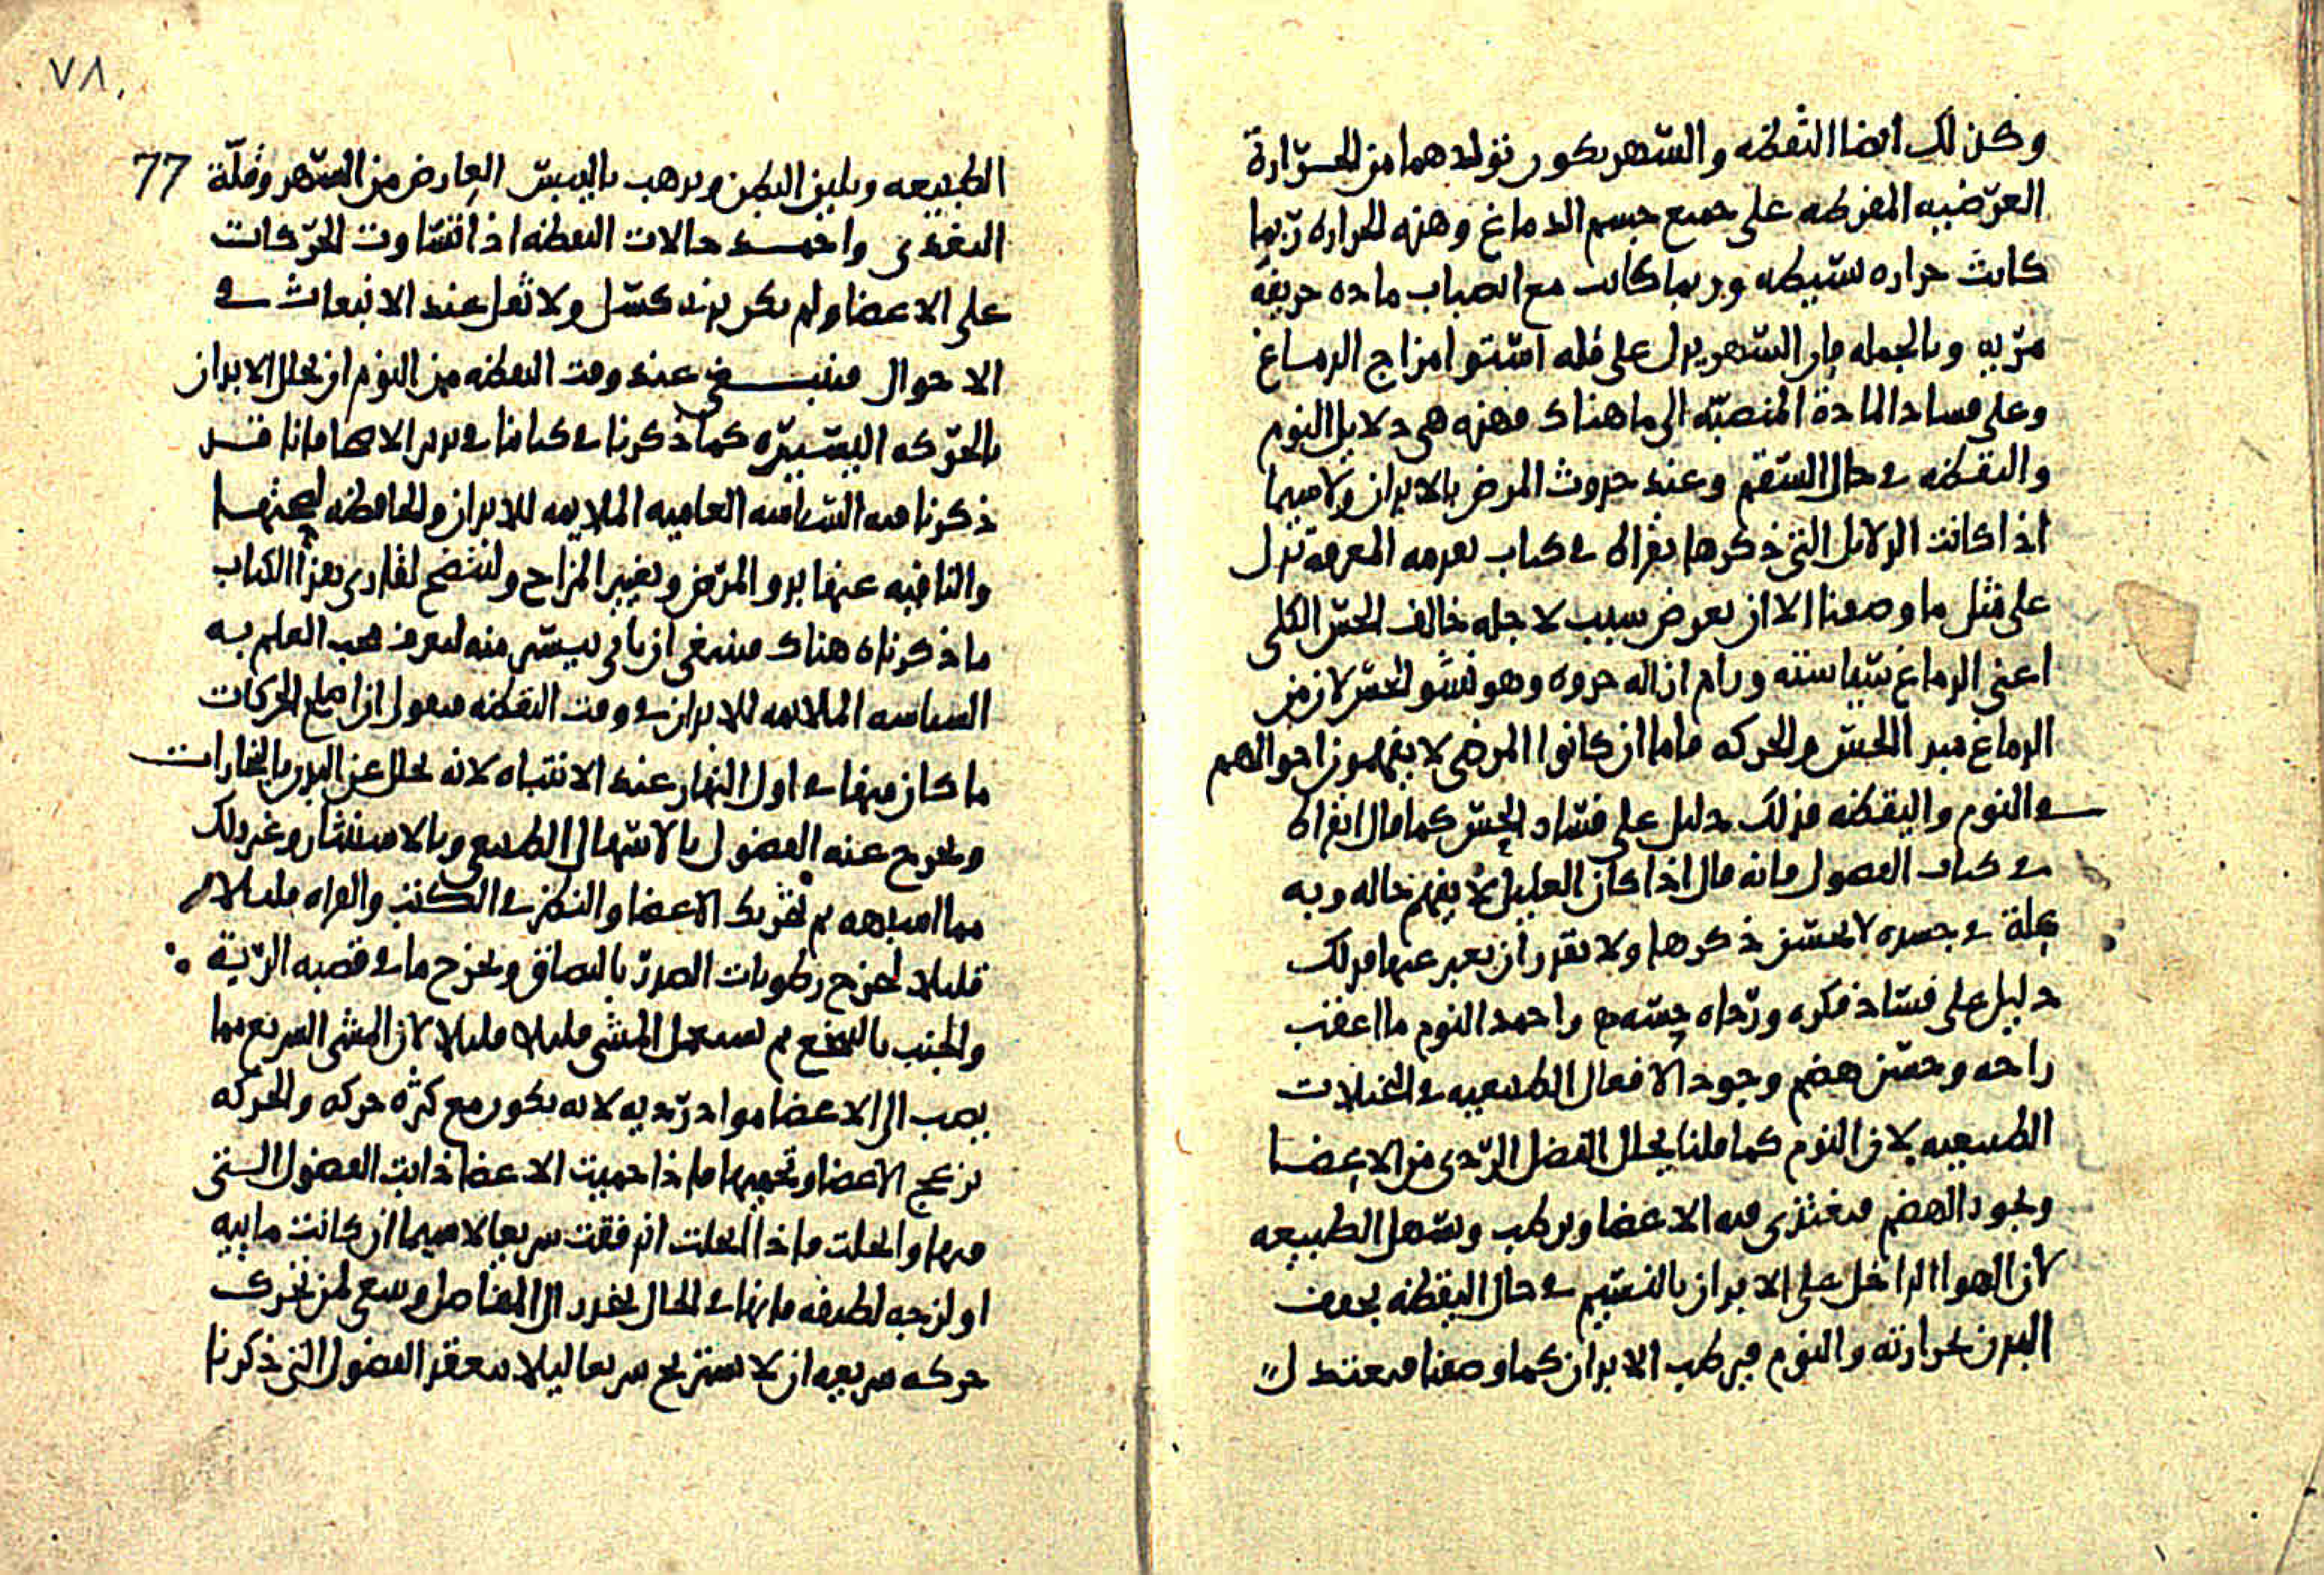 وكذلك ايضا اليقظه والسهر يكون تولدهما من الحرارة
العرضيه المفرطه على جميع جسم الدماغ وهذه الحراره ربما
كانت حراره بسيطه وربما كانت مع انصباب ماده حريفه
مريه وبالجمله فان السهر يدل على قله استوا مزاج الدماغ
وعلى فساد المادة المنصبة الى ما هناك فهذه هى دلايل النوم
واليقظه في حال السقم وعند حدوث المرض بالابدان ولا سيما
اذا كانت الدلايل التي ذكرها بقراط في كتاب تقدمه المعرفة تدل
على مثل ما وصفنا الا ان يعرض سبب لاجله خالف الحس الكلى
اعنى الدماغ سياسته ورام ازاله حدوه وهو نشو الحس لان من
الدماغ مبدا الحس والحركه فاما ان كانوا المرضى لا يفهمون احوالهم
في النوم واليقظه فذلك دليل على فساد الحس كما قال ابقراط
في كتاب الفصول فانه قال اذا كان العليل لا يفهم حاله وبه
علة في جسده لا يحسن ذكرها ولا يقدر ان يعبر عنها فذلك
دليل على فساد فكره ورداه حسه واحمد النوم ما اعقب
راحه وحسن هضم وجود الافعال الطبيعيه في الحالات
الطبيعيه لان النوم كما قلنا يحلل الفضل الردى من الاعضا
ويجود الهضم فيغتذى منه الاعضا ويرطب ويسهل الطبيعه
لان الهوا الداخل على الابدان بالنسيم في حال اليقظه يجفف
البدن بحرارته والنوم فيرطب الابدان كما وصفنا فيعتدل
٧٨
77
الطبيعه ويلين البطن ويذهب باليبس العارض من السهر وقلّة
التغذى واحمد حالات اليقظه اذا تساوت الحركات
على الاعضا ولم يكن بدنه كسل ولا ثقل عند الانبعاث في
الاحوال فينبغي عند وقت اليقظه من النوم ان تحلل الابدان
بالحركه اليسيره كما ذكرنا في كتابنا في تدبير الاصحا فانا قد
ذكرنا فيه السياسه العاميه الملايمه للابدان والحافظه لصحتها
والنافيه عنها بدو المرض وتغيير المزاج وليتضح لقارى هذا الكتاب
ما ذكرناه هناك فينبغى ان ياتى بيسير منه ليعرف محب العلم به
السياسه الملايمه للابدان في وقت اليقظه فنقول ان اصلح الحركات
ما كان منها في اول النهار عند الانتباه لانه يحلل عن البدن بالبخارات
ويخرج عنه الفضول بالاسهال الطبيعى وبالاستنثار وغير ذلك
مما اشبهه ثم تحريك الاعضا والنظر في الكتب والقراه قليلا
قليلا ليخرج رطوبات الصدر بالبصاق ويخرج ما في قصبه الرية
والجنب بالتنخع ثم يستعمل المشى قليلا قليلا لان المشى السريع مما
يصب الى الاعضا مواد رديه لانه يكون مع كثره حركه والحركه
تزعج الاعضا وتحميها فاذا حميت الاعضا ذابت الفضول التى
فيها وانحلت فاذا انحلت اندفقت سريعا لا سيما ان كانت ماييه
او لزجه لطيفه فانها في الحال تنحدر الى المفاصل وينبغى لمن تحرك
حركه سريعه ان لا يستريح سريعا ليلا تنعقد الفضول التى ذكرنا